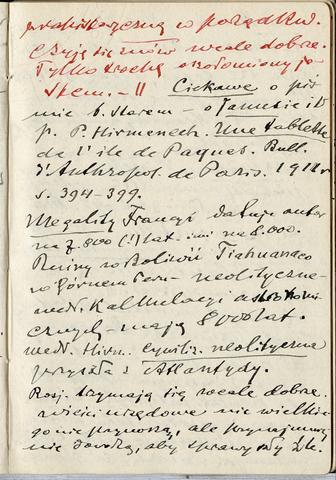 w porządku.
Czuję się znów wcale dobrze.
Tylko trochę oszołomiony je-
stem. – II Ciekawe o piś-
mie b. starem – o
p. P. Hirmenech. Une tablette
de l'île de Paques. Bull.
d'Anthropol. de Paris. 1912 r
s. 394–399.
Megality Francji datuje autor
na 7.800 (!) lat – inni na 8.000.
Ruiny w Boliwii Tiahuanaco
w górnem Peru – neolityczne
wedł. kalkulacyi astrono-
micznych – mają 8000 lat.
wedł. Hirm. cywiliz. neolityczna
przyszła z Atlantydy.
Rosj. trzymają się wcale dobrze.
wieści urzędowe nie wielkie-
go nie przynoszą, ale przynajmniej
nie dowodzą, aby sprawy szły źle.